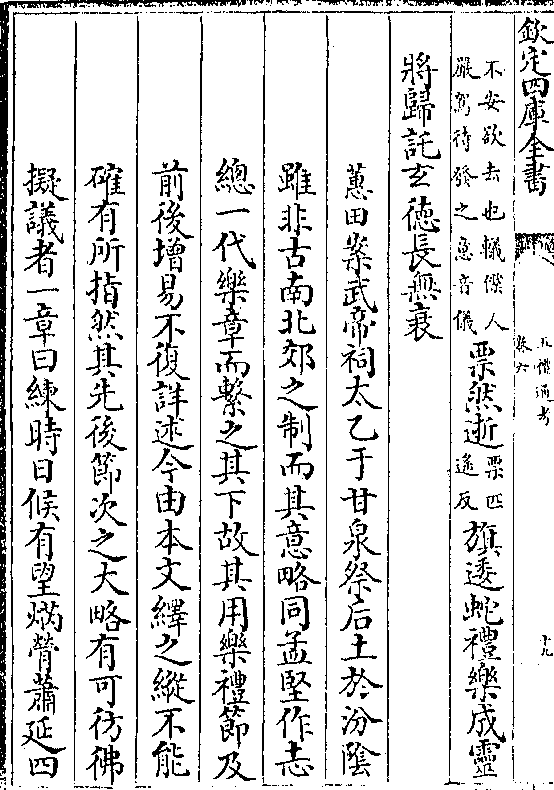 欽定四庫全書
五禮通考
卷六
十九
不安欲去也轙僕人
嚴駕待發之意音儀
票然逝
票匹
遙反
旗逶蛇禮樂成靈
將歸託玄德長無衰
蕙田案武帝祠太乙于甘泉祭后土於汾陰
雖非古南北郊之制而其意略同孟堅作志
總一代樂章而繫之其下故其用樂禮節及
前後增易不復詳述今由本文繹之縱不能
確有所指然其先後節次之大略有可彷彿
擬議者一章曰練時日候有望焫膋蕭延四